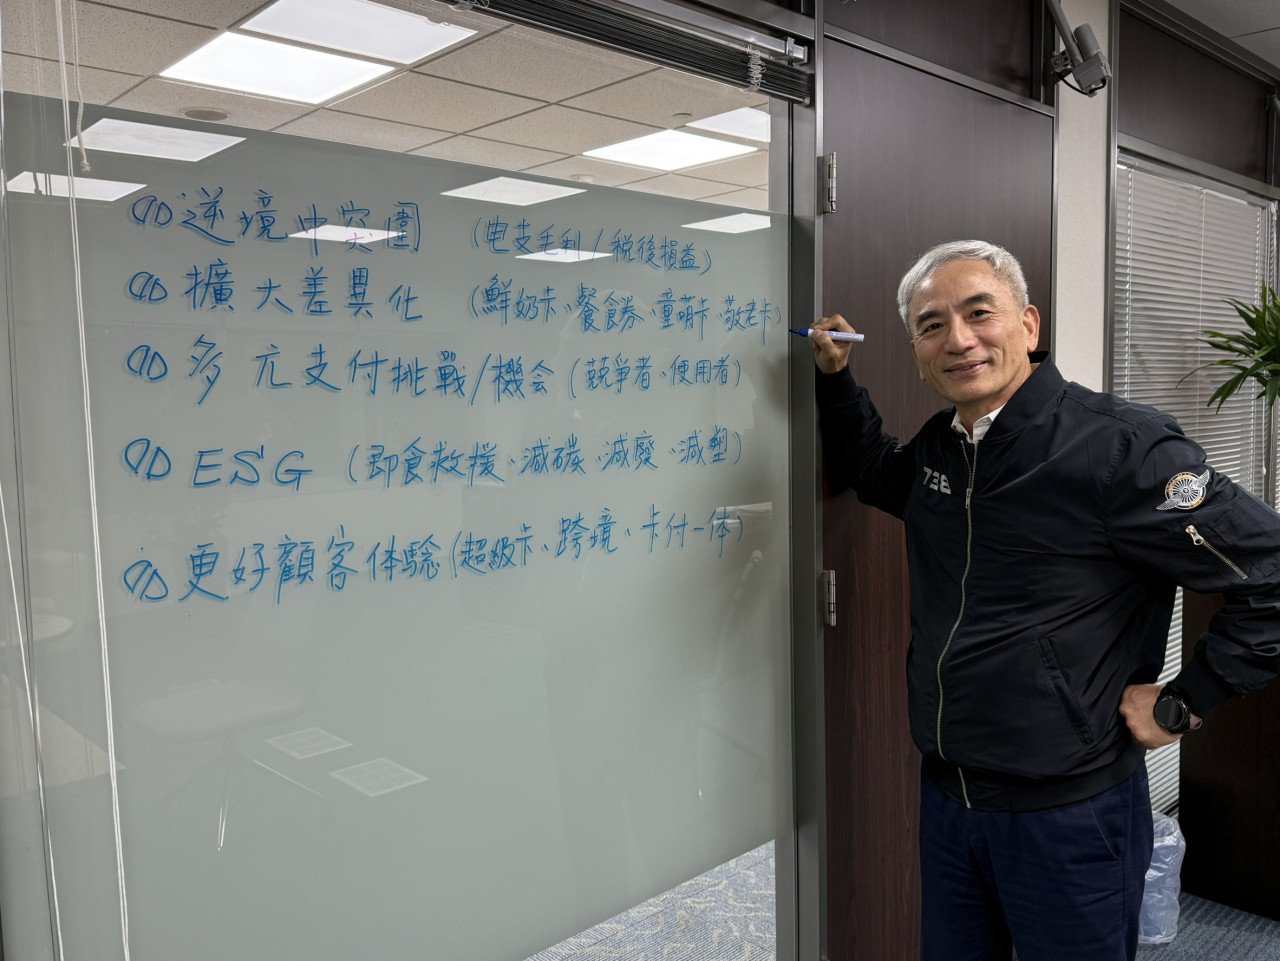 逆境中突圍 (电支毛利/税後損益)
擴大差異化 (鮮奶卡、餐食券、童萌卡、敬老卡)
多元支付挑戰/機会 (競爭者、使用者)
ESG (即食救援、減碳、減廢、減塑)
更好顧客体驗 (超級卡、跨境、卡付一体)